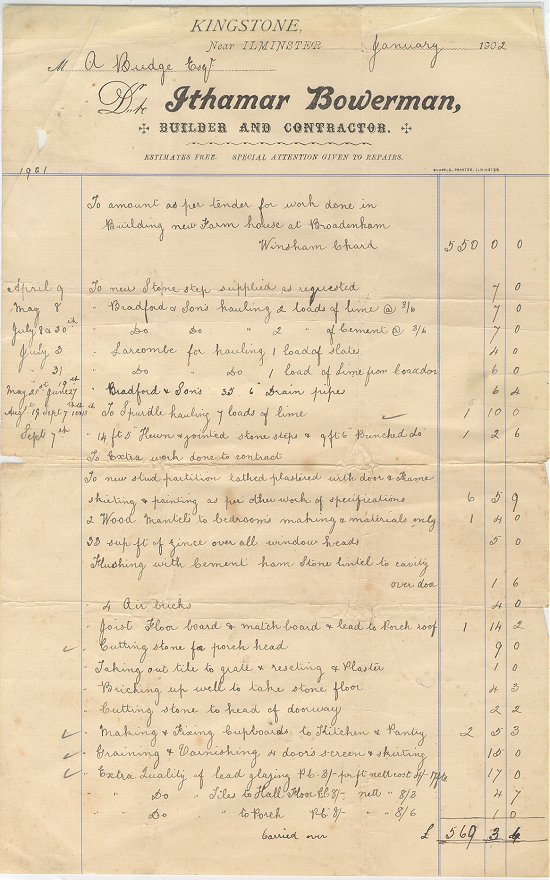 KINGSTONE,
Near ILMINSTER January 1902
M A Budge Esqr
Dr. to Ithamar Bowerman,
BUILDER AND CONTRACTOR.
ESTIMATES FREE. SPECIAL ATTENTION GIVEN TO REPAIRS.
CHAPPLE, PRINTER, ILMINSTER.
1901
To amount as per tender for work done in
Building new Farm house at Broadenham
Winsham Chard 550 0 0
April 9 To new Stone step supplied as requested 7 0
May 8 " Bradford & Son's hauling 2 loads of lime @ 3/6 7 0
July 8 & 30th " Do Do " 2 " of Cement @ 3/6 7 0
July 3 " Larcombe for hauling 1 load of slates 4 0
" 31 " Do " Do 1 load of Lime from 6 0
May 21st June 19th 27 " Bradford & Son's 35 6" Drain pipes 6 4
Augst 19 Sept 7 To Spurdle hauling 7 loads of lime 1 10 0
Sept 7th " 14 ft 5" Hewn & jointed stone steps & 9 ft 6" Bunched do 1 2 6
To Extra work done to contract
To new stud partition lathed plastered with door & Frame
skirting & painting as per other work of specifications 6 5 9
2 Wood Mantels to bedrooms making & materials only 1 4 0
33 sup ft of zince over all window heads 5 0
Flushing with Cement ham Stone lintel to cavity
over door 1 6
" 4 Air bricks 4 0
" Joist Floor board & match board & lead to Porch roof 1 14 2
" Cutting stone for porch head 9 0
" Taking out tile to grate & reseting & Plaster 1 0
" Bricking up well to take stone floor 4 3
" Cutting stone to head of doorway 2 2
" Making & Fixing Cupboards to Kitchen & Pantry 2 5 3
" Graining & Varnishing 4 doors screen & skirting 15 0
" Extra Quality of lead glazing P.C. 3/- per ft nett cost 17 0
" Do " Tile to Hall Floor P.C. 8/- nett " 8/3 4 7
" Do " to Porch P.C. 8/- " " 8/6 1 0
Carried over £ 569 3 4